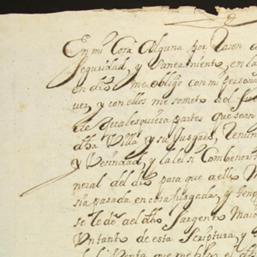 En mi Cosa Alguna por Rason de
Seguridad, y Saneamiento, en la
en dho me obligo con mi persona
ues, y con ellos me someto al fue
de qualesquiera partes que sean
dha Villa y su Jusgado, Renun
y Vesindad, y la lei Combeneri
neral del dro para que a ello
sia pasada en cosa jusgada, y
se le de al dho Sargento Maior
Vn tanto de esta Scriptura, y